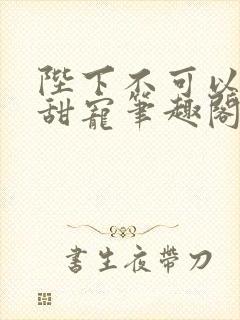 陛下不可以
甜寵筆趣閣
書生夜帶刀